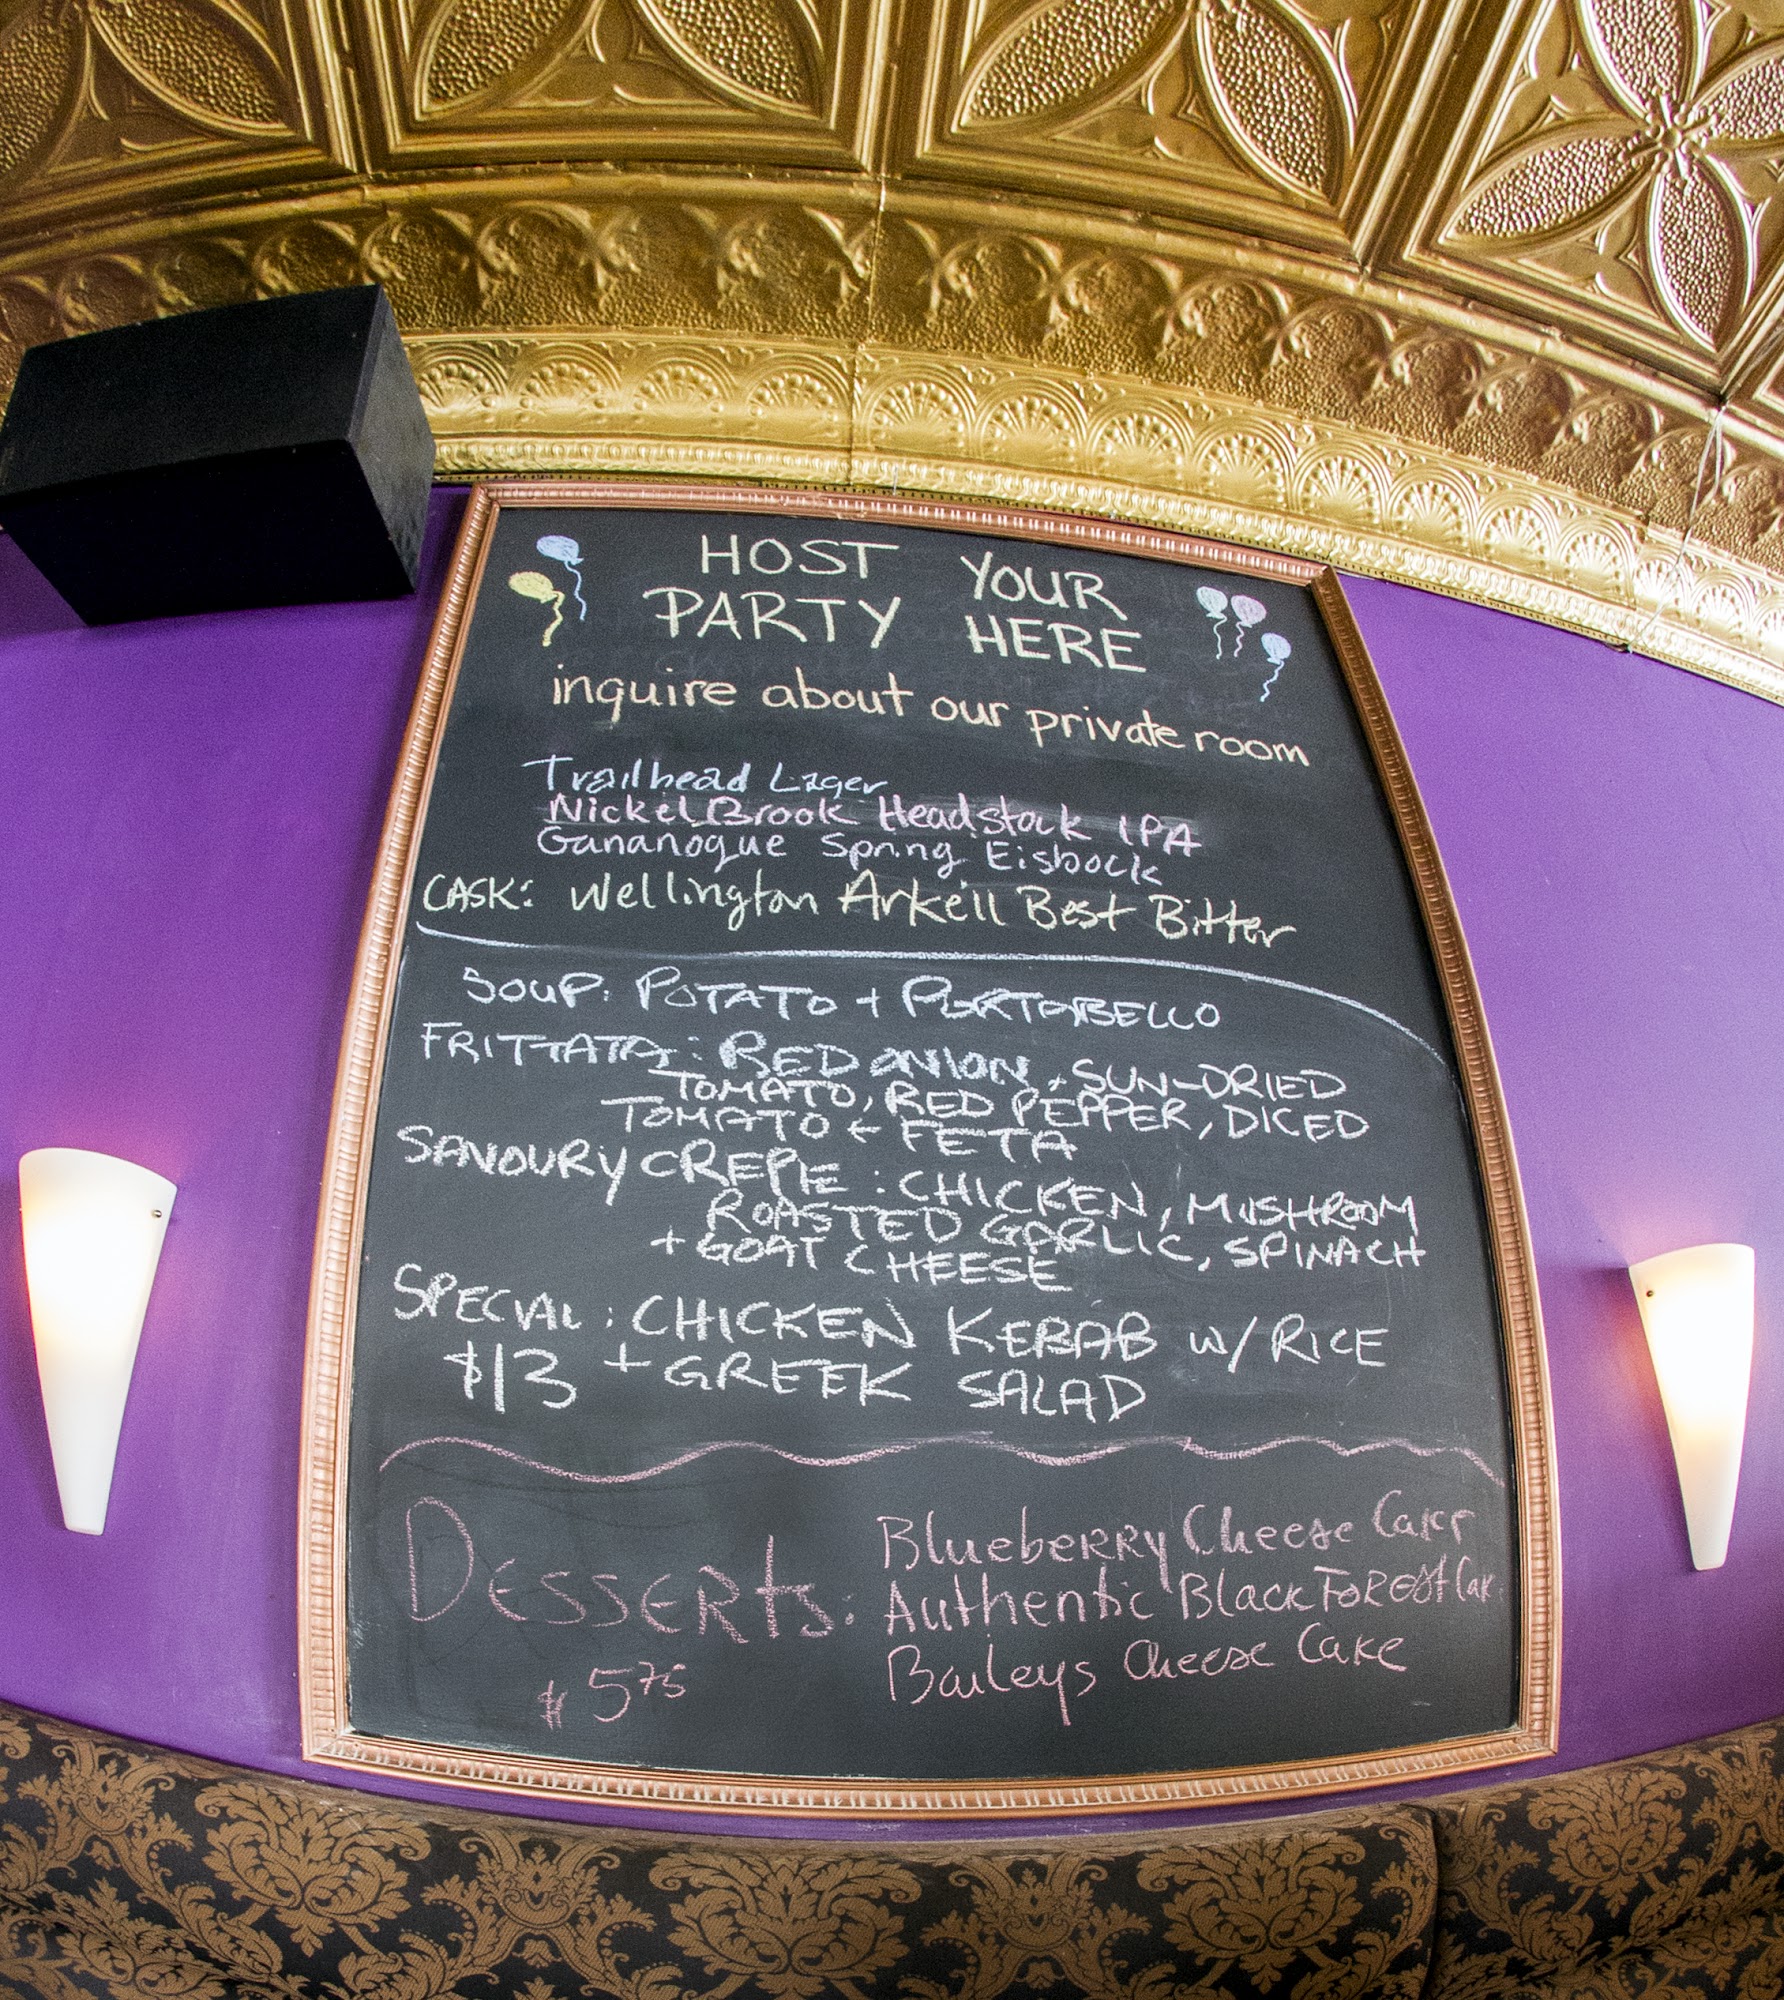 HOST YOUR
PARTY HERE
inquire about our private room
Trailhead Lager
Nickel Brook Headstock IPA
Gananoque Spring Eisbock
CASK: Wellington Arkell Best Bitter
SOUP: POTATO + PORTOBELLO
FRITTATA: RED ONION, SUN-DRIED
TOMATO, RED PEPPER, DICED
TOMATO + FETA
SAVOURY CREPE: CHICKEN, MUSHROOM
ROASTED GARLIC, SPINACH
+ GOAT CHEESE
SPECIAL: CHICKEN KEBAB W/ RICE
$13 + GREEK SALAD
DESSERTS: Blueberry Cheese Cake
Authentic Black Forest Cak
$5.75 Baileys Cheese Cake